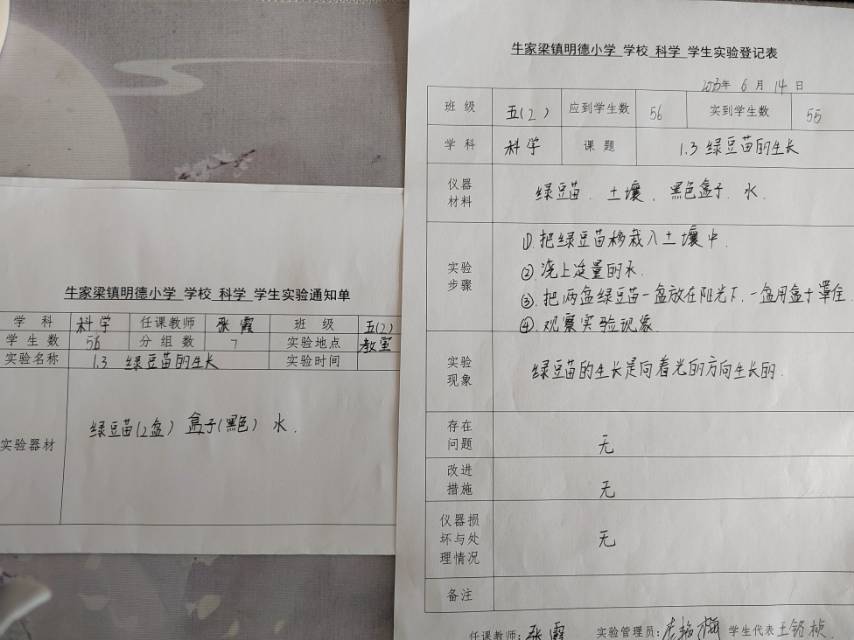 牛家梁镇明德小学 学校 科学 学生实验通知单
学科 科学 任课教师 张霞 班级 五(2)
学生数 56 分组数 7 实验地点 教室
实验名称 1.3 绿豆苗的生长 实验时间
实验器材 绿豆苗(2盆) 盒子(黑色) 水.
牛家梁镇明德小学 学校 科学 学生实验登记表
2023年 6月 14日
班级 五(2) 应到学生数 56 实到学生数 55
学科 科学 课题 1.3 绿豆苗的生长
仪器材料 绿豆苗、土壤、黑色盒子、水.
实验步骤 ①.把绿豆苗移栽入土壤中.
②浇上定量的水.
③.把两盆绿豆苗一盆放在阳光下,一盆用盒子罩住.
④.观察实验现象.
实验现象 绿豆苗的生长是向着光的方向生长的.
存在问题 无
改进措施 无
仪器损坏与处理情况 无
备注
任课教师:张霞 实验管理员: 学生代表